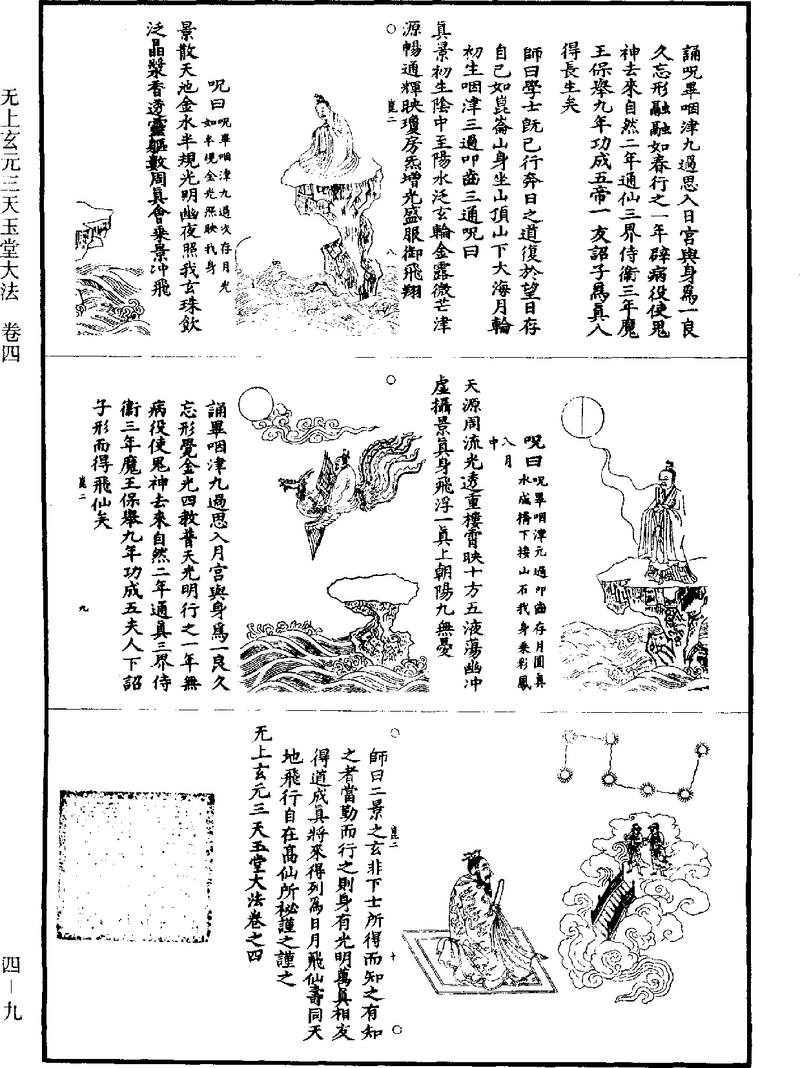 誦呪畢咽津九過思入日宮與身爲一良
久忘形融融如春行之一年辟病役使鬼
神去來自然二年通仙三界侍衛三年魔
王保舉九年功成五帝一友詔子爲眞人
得長生矣
師曰學士旣已行奔日之道復於望日存
自己如崑崙山身坐山頂山下大海月輪
初生咽津三過叩齒三通呪曰
眞景初生陰中至陽水泛玄輪金露微芒津
源暢通輝映瓊房炁增光盛服御飛翔
崑二
八
呪曰
呪畢咽津九過次存月光
如半規金光照映我身
景散天池金水半規光明幽夜照我玄珠飲
泛晶漿香透靈軀數周眞會乘景冲飛
呪曰
呪畢咽津元過叩齒存月圓眞
水成搆下接山石我身乘彩鳳
入月
中
天源周流光透重樓霄映十方五液蕩幽冲
虛攝景眞身飛浮一眞上朝陽九無憂
誦畢咽津九過思入月宮與身爲一良久
忘形覺金光四敎普天光明行之一年無
病役使鬼神去來自然二年通眞三界侍
衛三年魔王保舉九年功成五夫人下詔
子形而得飛仙矣
崑二
九
師曰二景之玄非下士所得而知之有知
之者當勤而行之則身有光明萬眞相友
得道成眞將來得列爲日月飛仙壽同天
地飛行自在高仙所祕謹之謹之
无上玄元三天玉堂大法卷之四
崑二
十
无上玄元三天玉堂大法 卷四
四—九